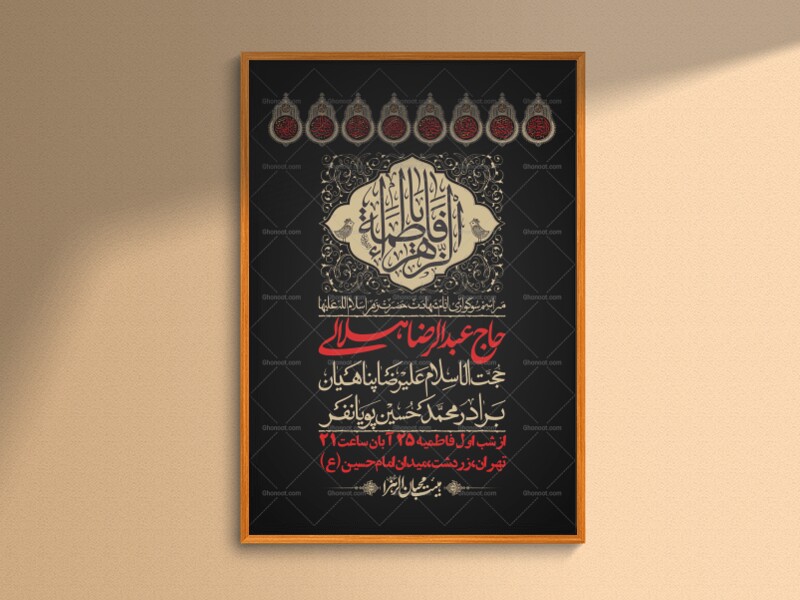 یا فاطمة الزهراء
مراسم سوگواری ایام شهادت حضرت زهرا سلام الله علیها
حاج عبدالرضا هلالی
حجت الاسلام علیرضا پناهیان
برادر محمدحسین پویانفر
از شب اول فاطمیه ۲۵ آبان ساعت ۲۱
تهران، زردشت، میدان امام حسین (ع)
هیئت محبان الزهرا
Ghonoot.com